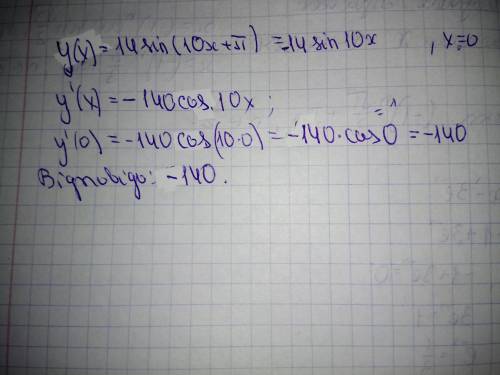 y(x) = 14 sin(10x+π) = -14 sin 10x , x=0
y'(x) = -140 cos 10x ;
y'(0) = -140 cos(10·0) = -140 · cos 0 = -140
= 1
Відповідь: -140.